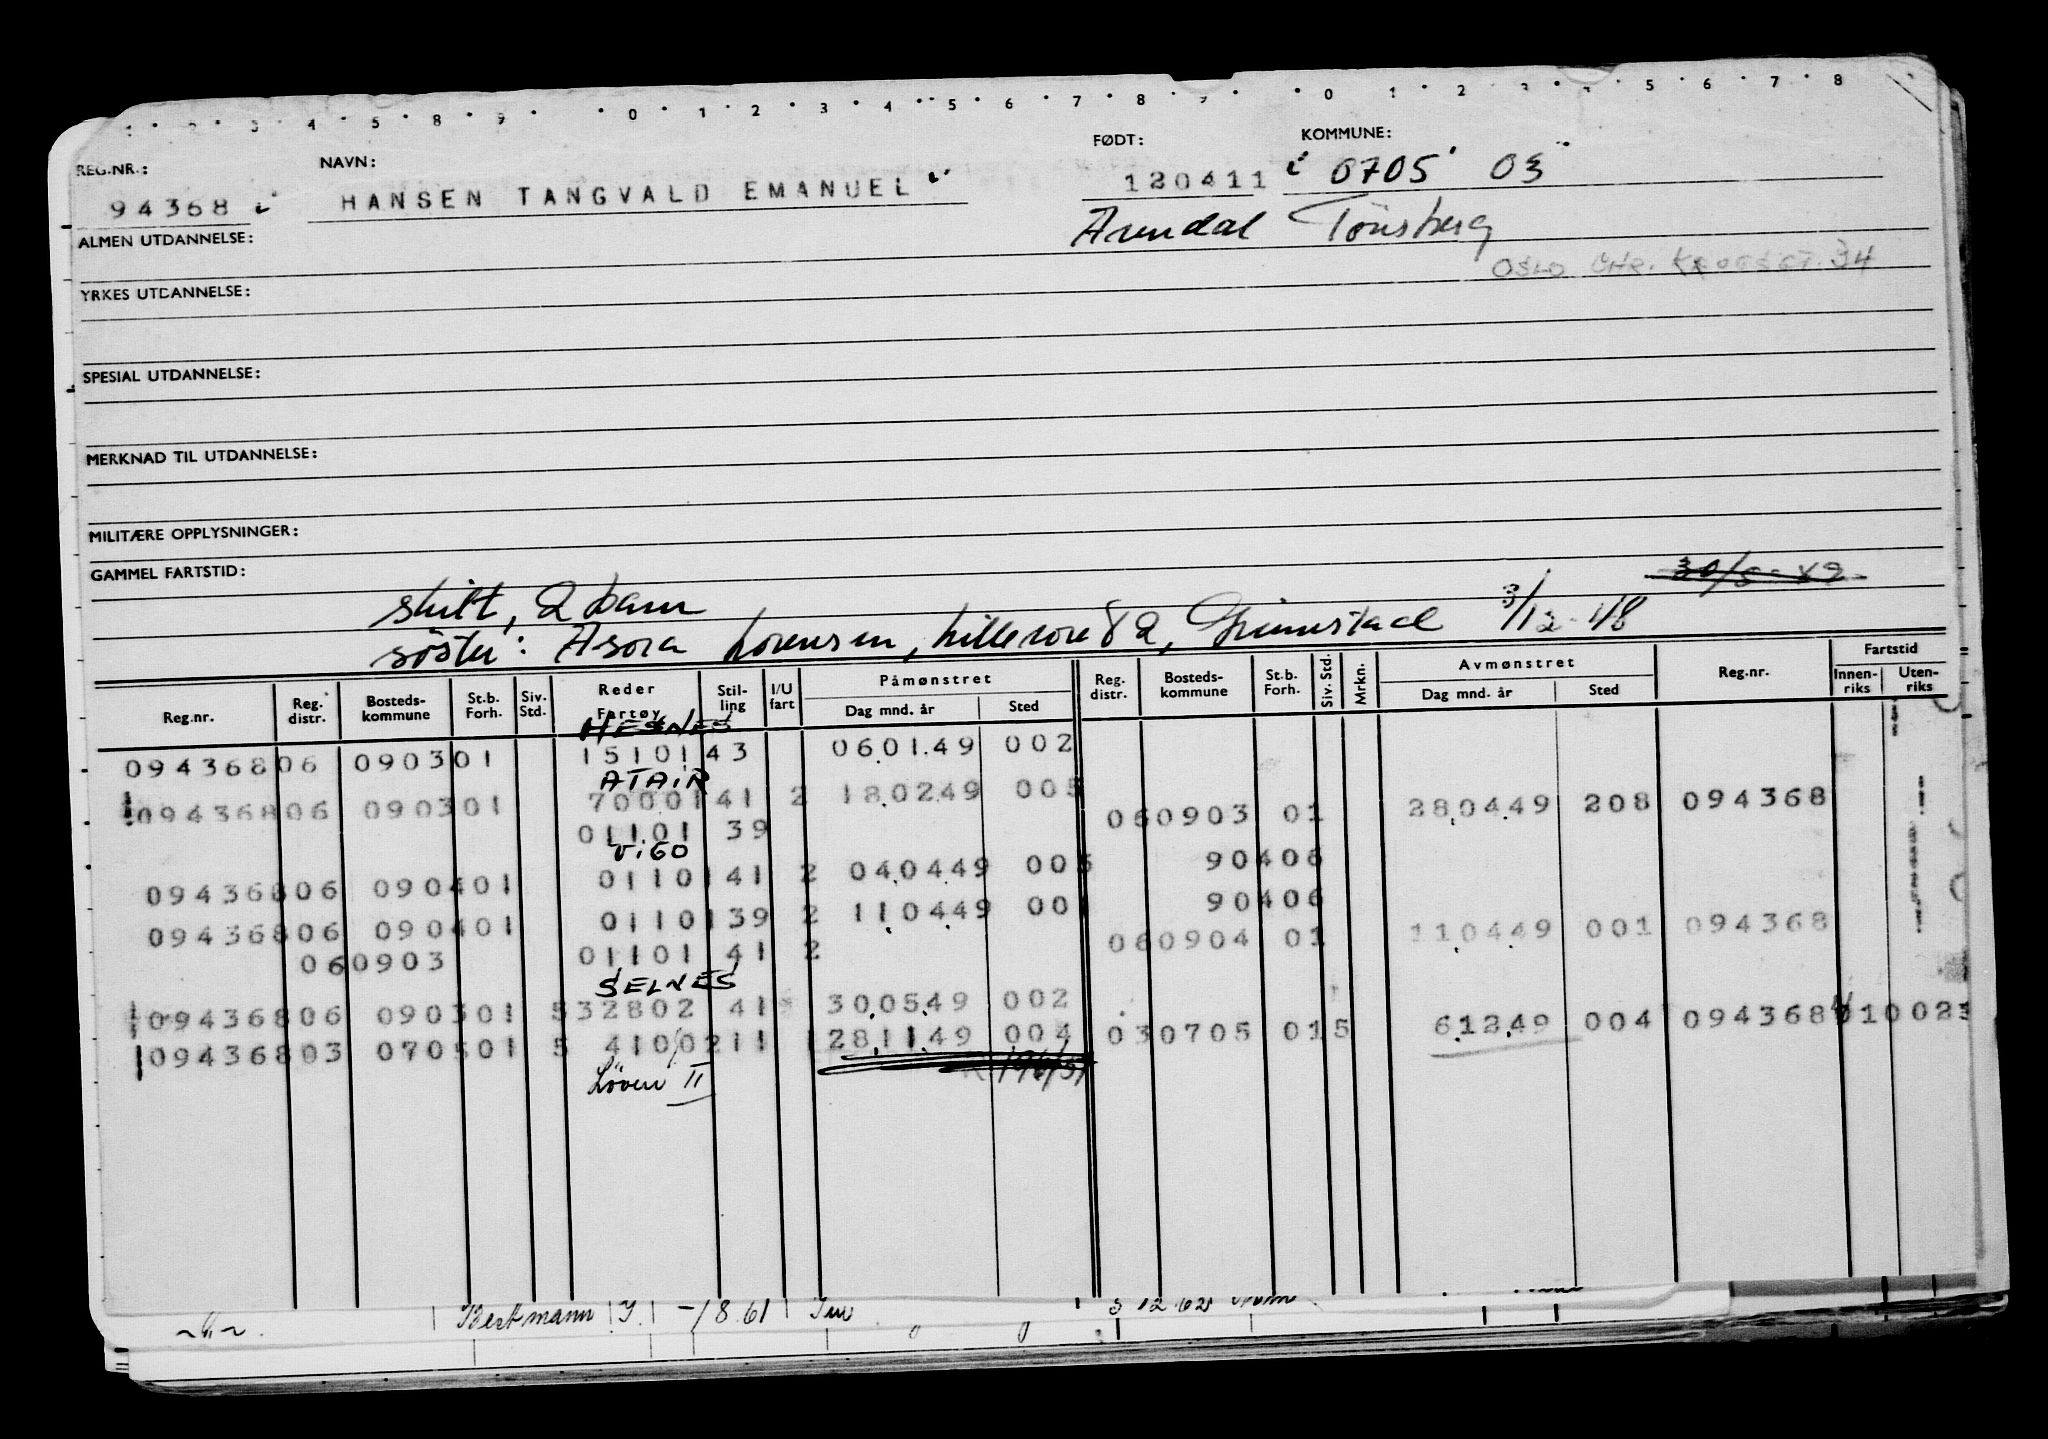 REG.NR.: NAVN: FØDT: KOMMUNE:
94368 HANSEN TANGVALD EMANUEL 120411 0705 03
ALMEN UTDANNELSE: Arendal Tönsberg
OSLO CHR. KROGSGT. 34
YRKES UTDANNELSE:
SPESIAL UTDANNELSE:
MERKNAD TIL UTDANNELSE:
MILITÆRE OPPLYSNINGER:
GAMMEL FARTSTID:
skilt, 2 barn
søster: Asora Lorensen, 82, Grimstad 3/12-48
Reg.nr. Reg. distr. Bosteds-kommune St.b. Forh. Siv. Std. Reder Fartøy Stil-ling I/U fart Påmønstret Dag mnd. år Sted Reg. distr. Bosteds-kommune St.b. Forh. Siv. Std. Mrkn. Avmønstret Dag mnd. år Sted Reg.nr. Fartstid Innen-riks Uten-riks
HESNES
09436806 090301 15101 43 060149 002
ATAIR
09436806 090301 70001 41 2 180249 005 060903 01 280449 208 094368
01101 39
VIGO
09436806 090401 01101 41 2 040449 005 90406
09436806 090401 01101 39 2 110449 001 90406
060903 01101 41 2 060904 01 110449 001 094368
SELNES
09436806 090301 5 32802 41 300549 002
09436803 070501 5 410 0211 1 281149 004 030705 01 5 61249 004 094368
Løven II
Bertmann J. -/8.61